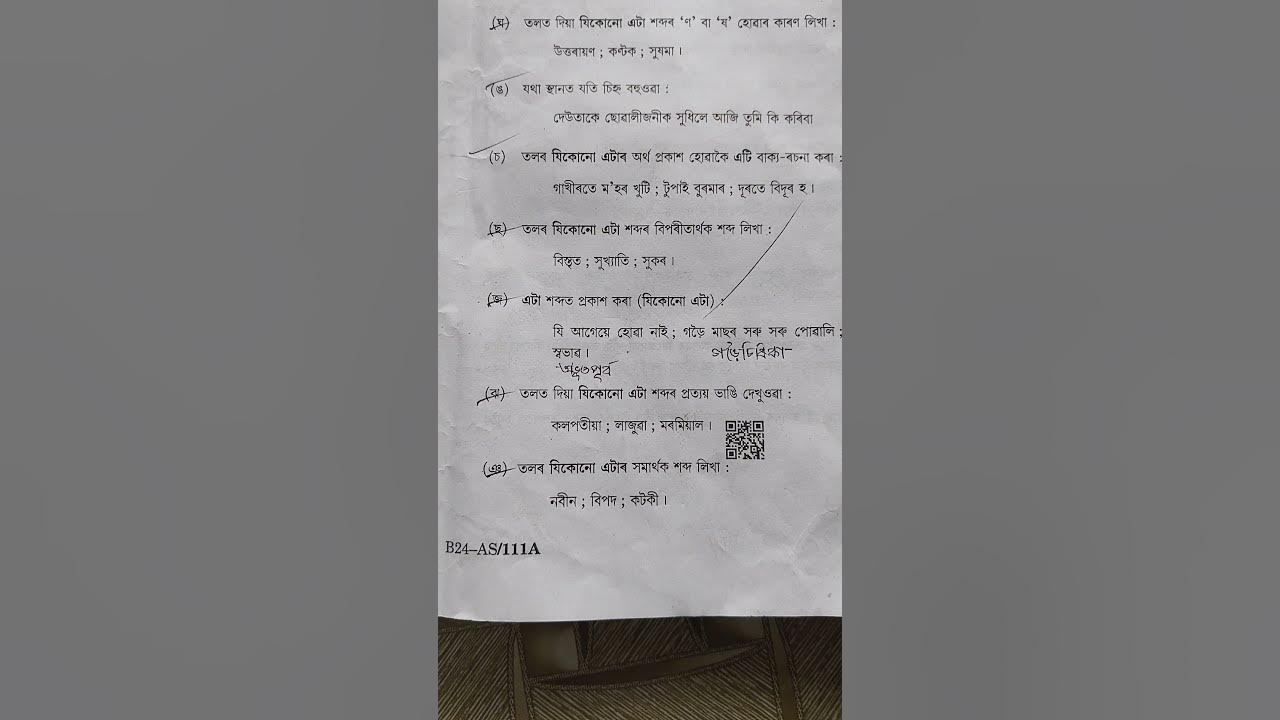 (ঘ) তলত দিয়া যিকোনো এটা শব্দৰ ‘ণ’ বা ‘ষ’ হোৱাৰ কাৰণ লিখা :
উত্তৰায়ণ ; কণ্টক ; সুষমা ।
(ঙ) যথা স্থানত যতি চিহ্ন বহুওৱা :
দেউতাকে ছোৱালীজনীক সুধিলে আজি তুমি কি কৰিবা
(চ) তলৰ যিকোনো এটাৰ অৰ্থ প্ৰকাশ হোৱাকৈ এটি বাক্য-ৰচনা কৰা :
গাখীৰতে ম'হৰ খুটি ; টুপাই বুৰমাৰ ; দূৰতে বিদূৰ হ ।
(ছ) তলৰ যিকোনো এটা শব্দৰ বিপৰীতাৰ্থক শব্দ লিখা :
বিস্তৃত ; সুখ্যাতি ; সুকৰ ।
(জ) এটা শব্দত প্ৰকাশ কৰা (যিকোনো এটা) :
যি আগেয়ে হোৱা নাই ; গড়ৈ মাছৰ সৰু সৰু পোৱালি ;
স্বভাৱ ।
অভূতপূৰ্ব
(ঝ) তলত দিয়া যিকোনো এটা শব্দৰ প্ৰত্যয় ভাঙি দেখুওৱা :
কলপতীয়া ; লাজুৱা ; মৰমিয়াল ।
(ঞ) তলৰ যিকোনো এটাৰ সমাৰ্থক শব্দ লিখা :
নবীন ; বিপদ ; কটকী ।
B24–AS/111A